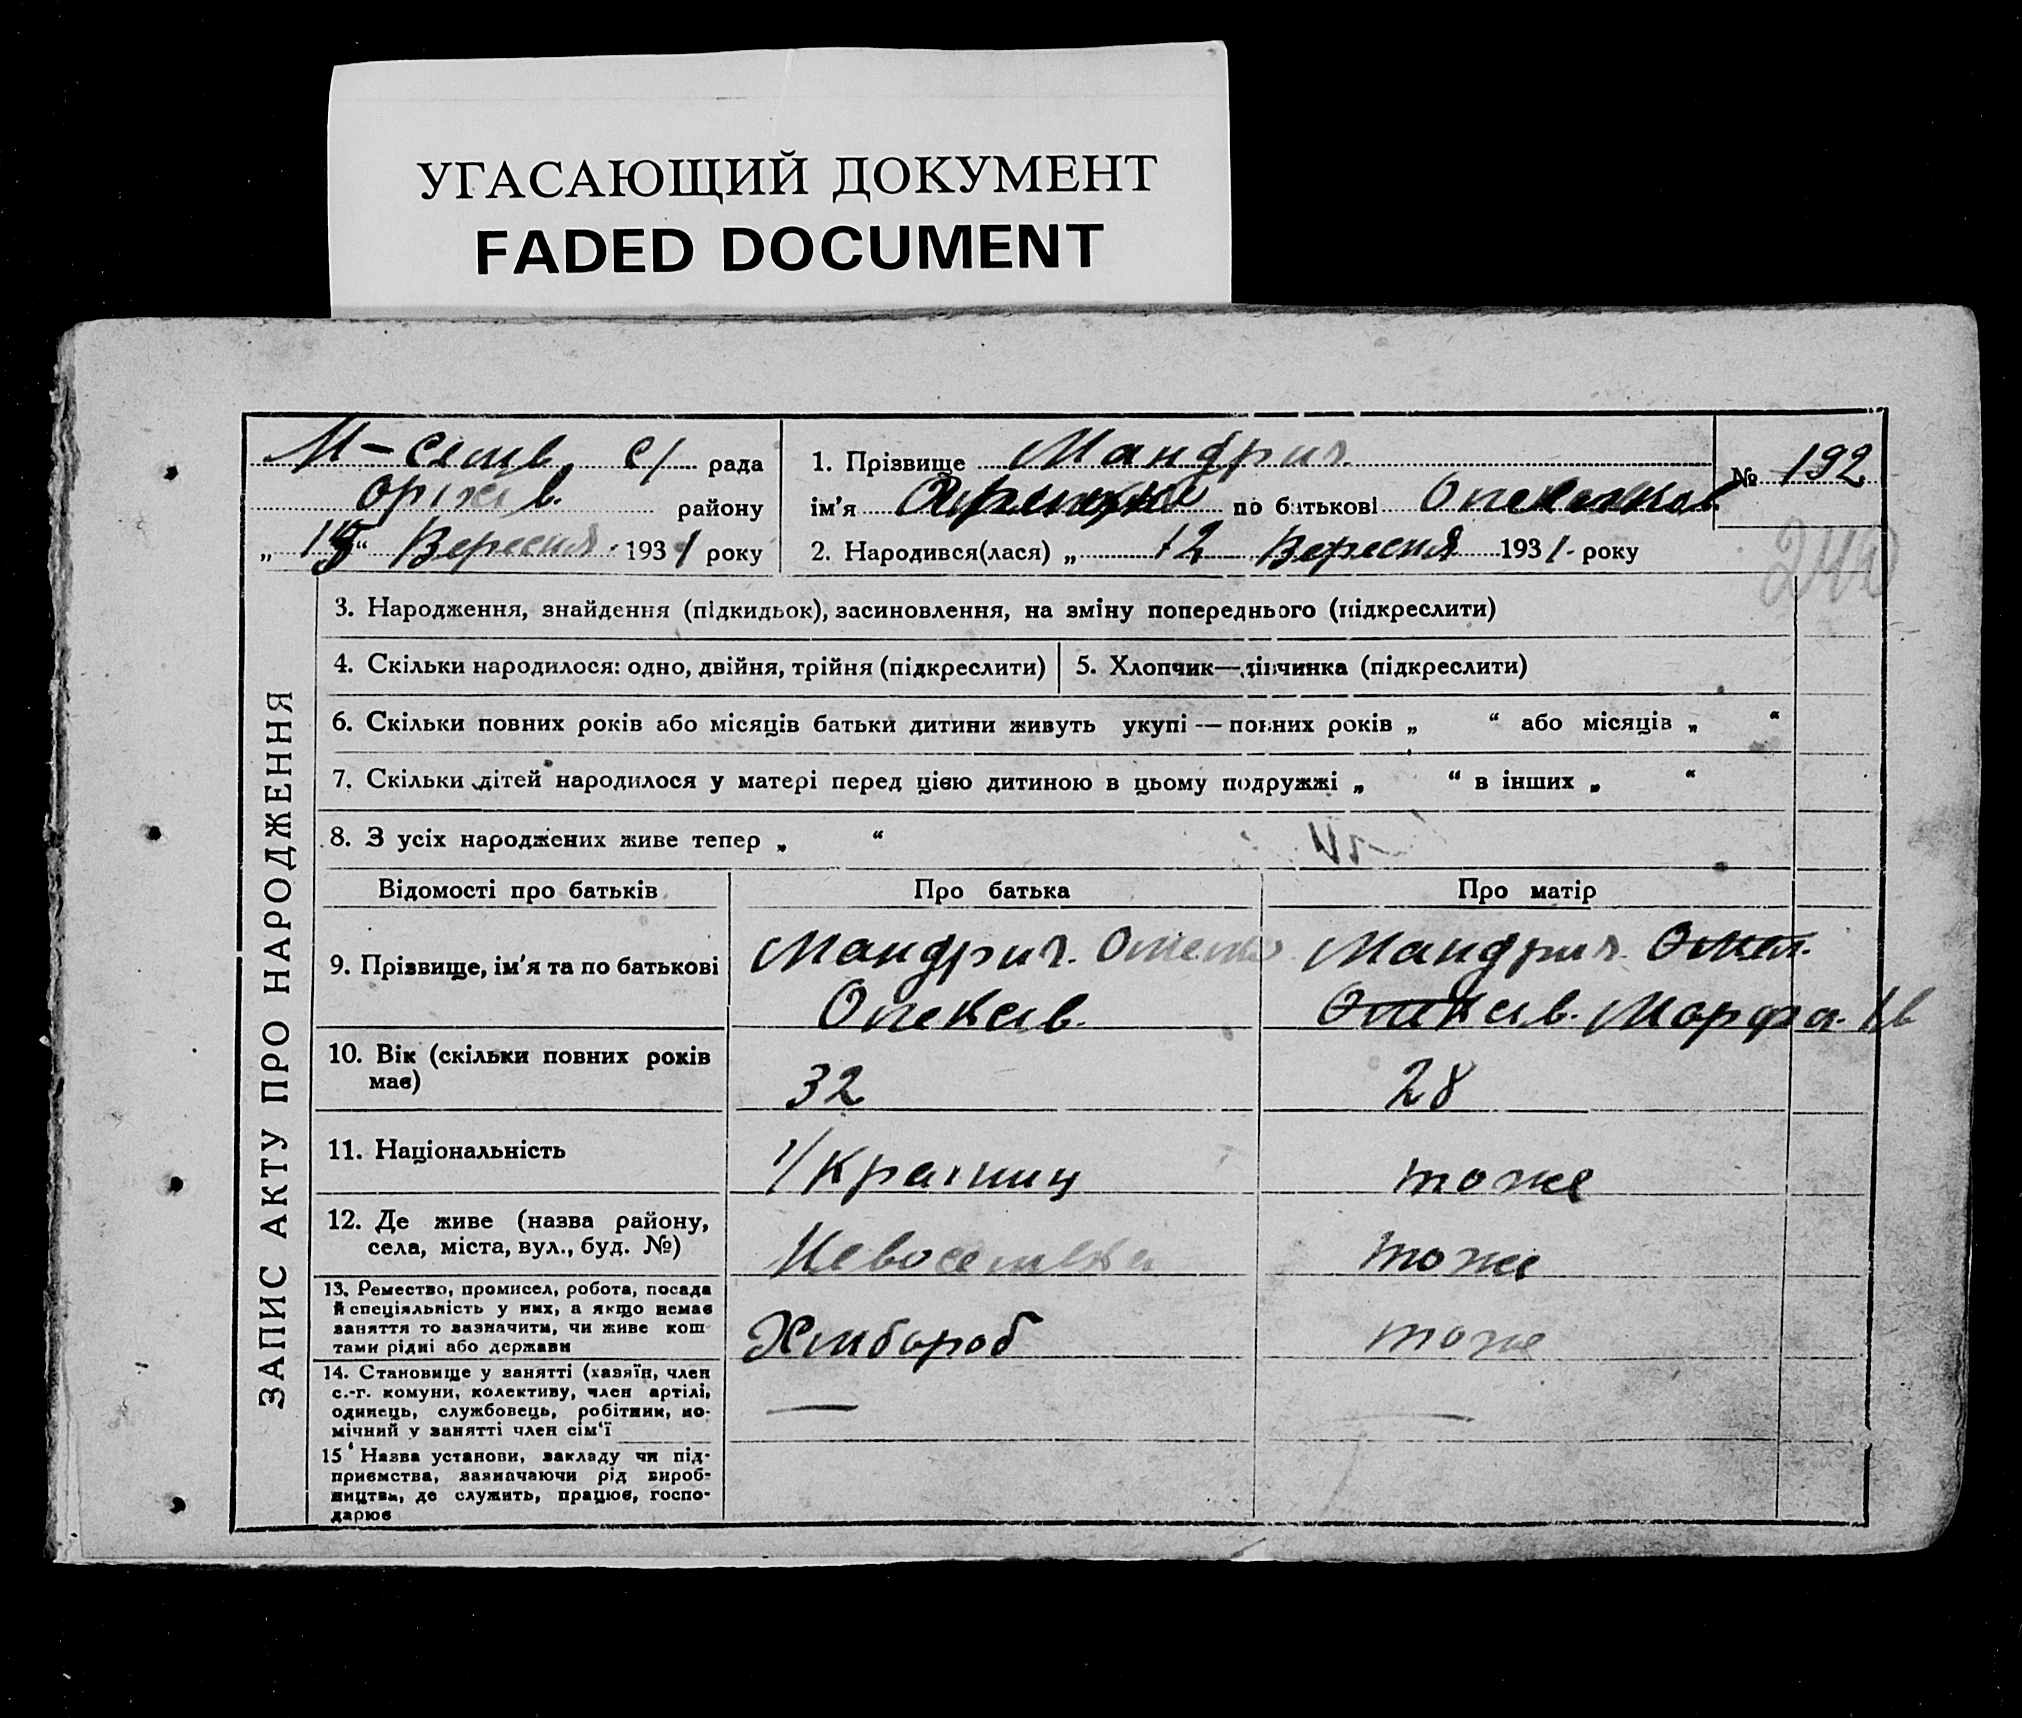 УГАСАЮЩИЙ ДОКУМЕНТ
FADED DOCUMENT
с/ рада
району
„ “ Вересня 1931 року
1. Прізвище Мандрич
ім'я по батькові
2. Народився(лася) „ 12 Вересня 1931 року
№ 192
240
ЗАПИС АКТУ ПРО НАРОДЖЕННЯ
3. Народження, знайдення (підкидьок), засиновлення, на зміну попереднього (підкреслити)
4. Скільки народилося: одно, двійня, трійня (підкреслити)
5. Хлопчик—дівчинка (підкреслити)
6. Скільки повних років або місяців батьки дитини живуть укупі — повних років „ “ або місяців „ “
7. Скільки дітей народилося у матері перед цією дитиною в цьому подружжі „ “ в інших „ “
8. З усіх народжених живе тепер „ “
Відомості про батьків
Про батька
Про матір
9. Прізвище, ім'я та по батькові
Мандрич.
Мандрич.
Марфа. Ів
10. Вік (скільки повних років
має)
32
28
11. Національність
тоже
12. Де живе (назва району,
села, міста, вул., буд. №)
тоже
13. Ремество, промисел, робота, посада
й спеціяльність у них, а якщо немає
заняття то зазначити, чи живе кош
тами рідні або держави
Хлібороб
тоже
14. Становище у занятті (хазяїн, член
с.-г. комуни, колективу, член артілі,
одинець, службовець, робітник, по-
мічний у занятті член сім'ї
—
—
15 Назва установи, закладу чи під-
приємства, зазначаючи рід вироб-
ництва, де служить, працює, госпо-
дарює